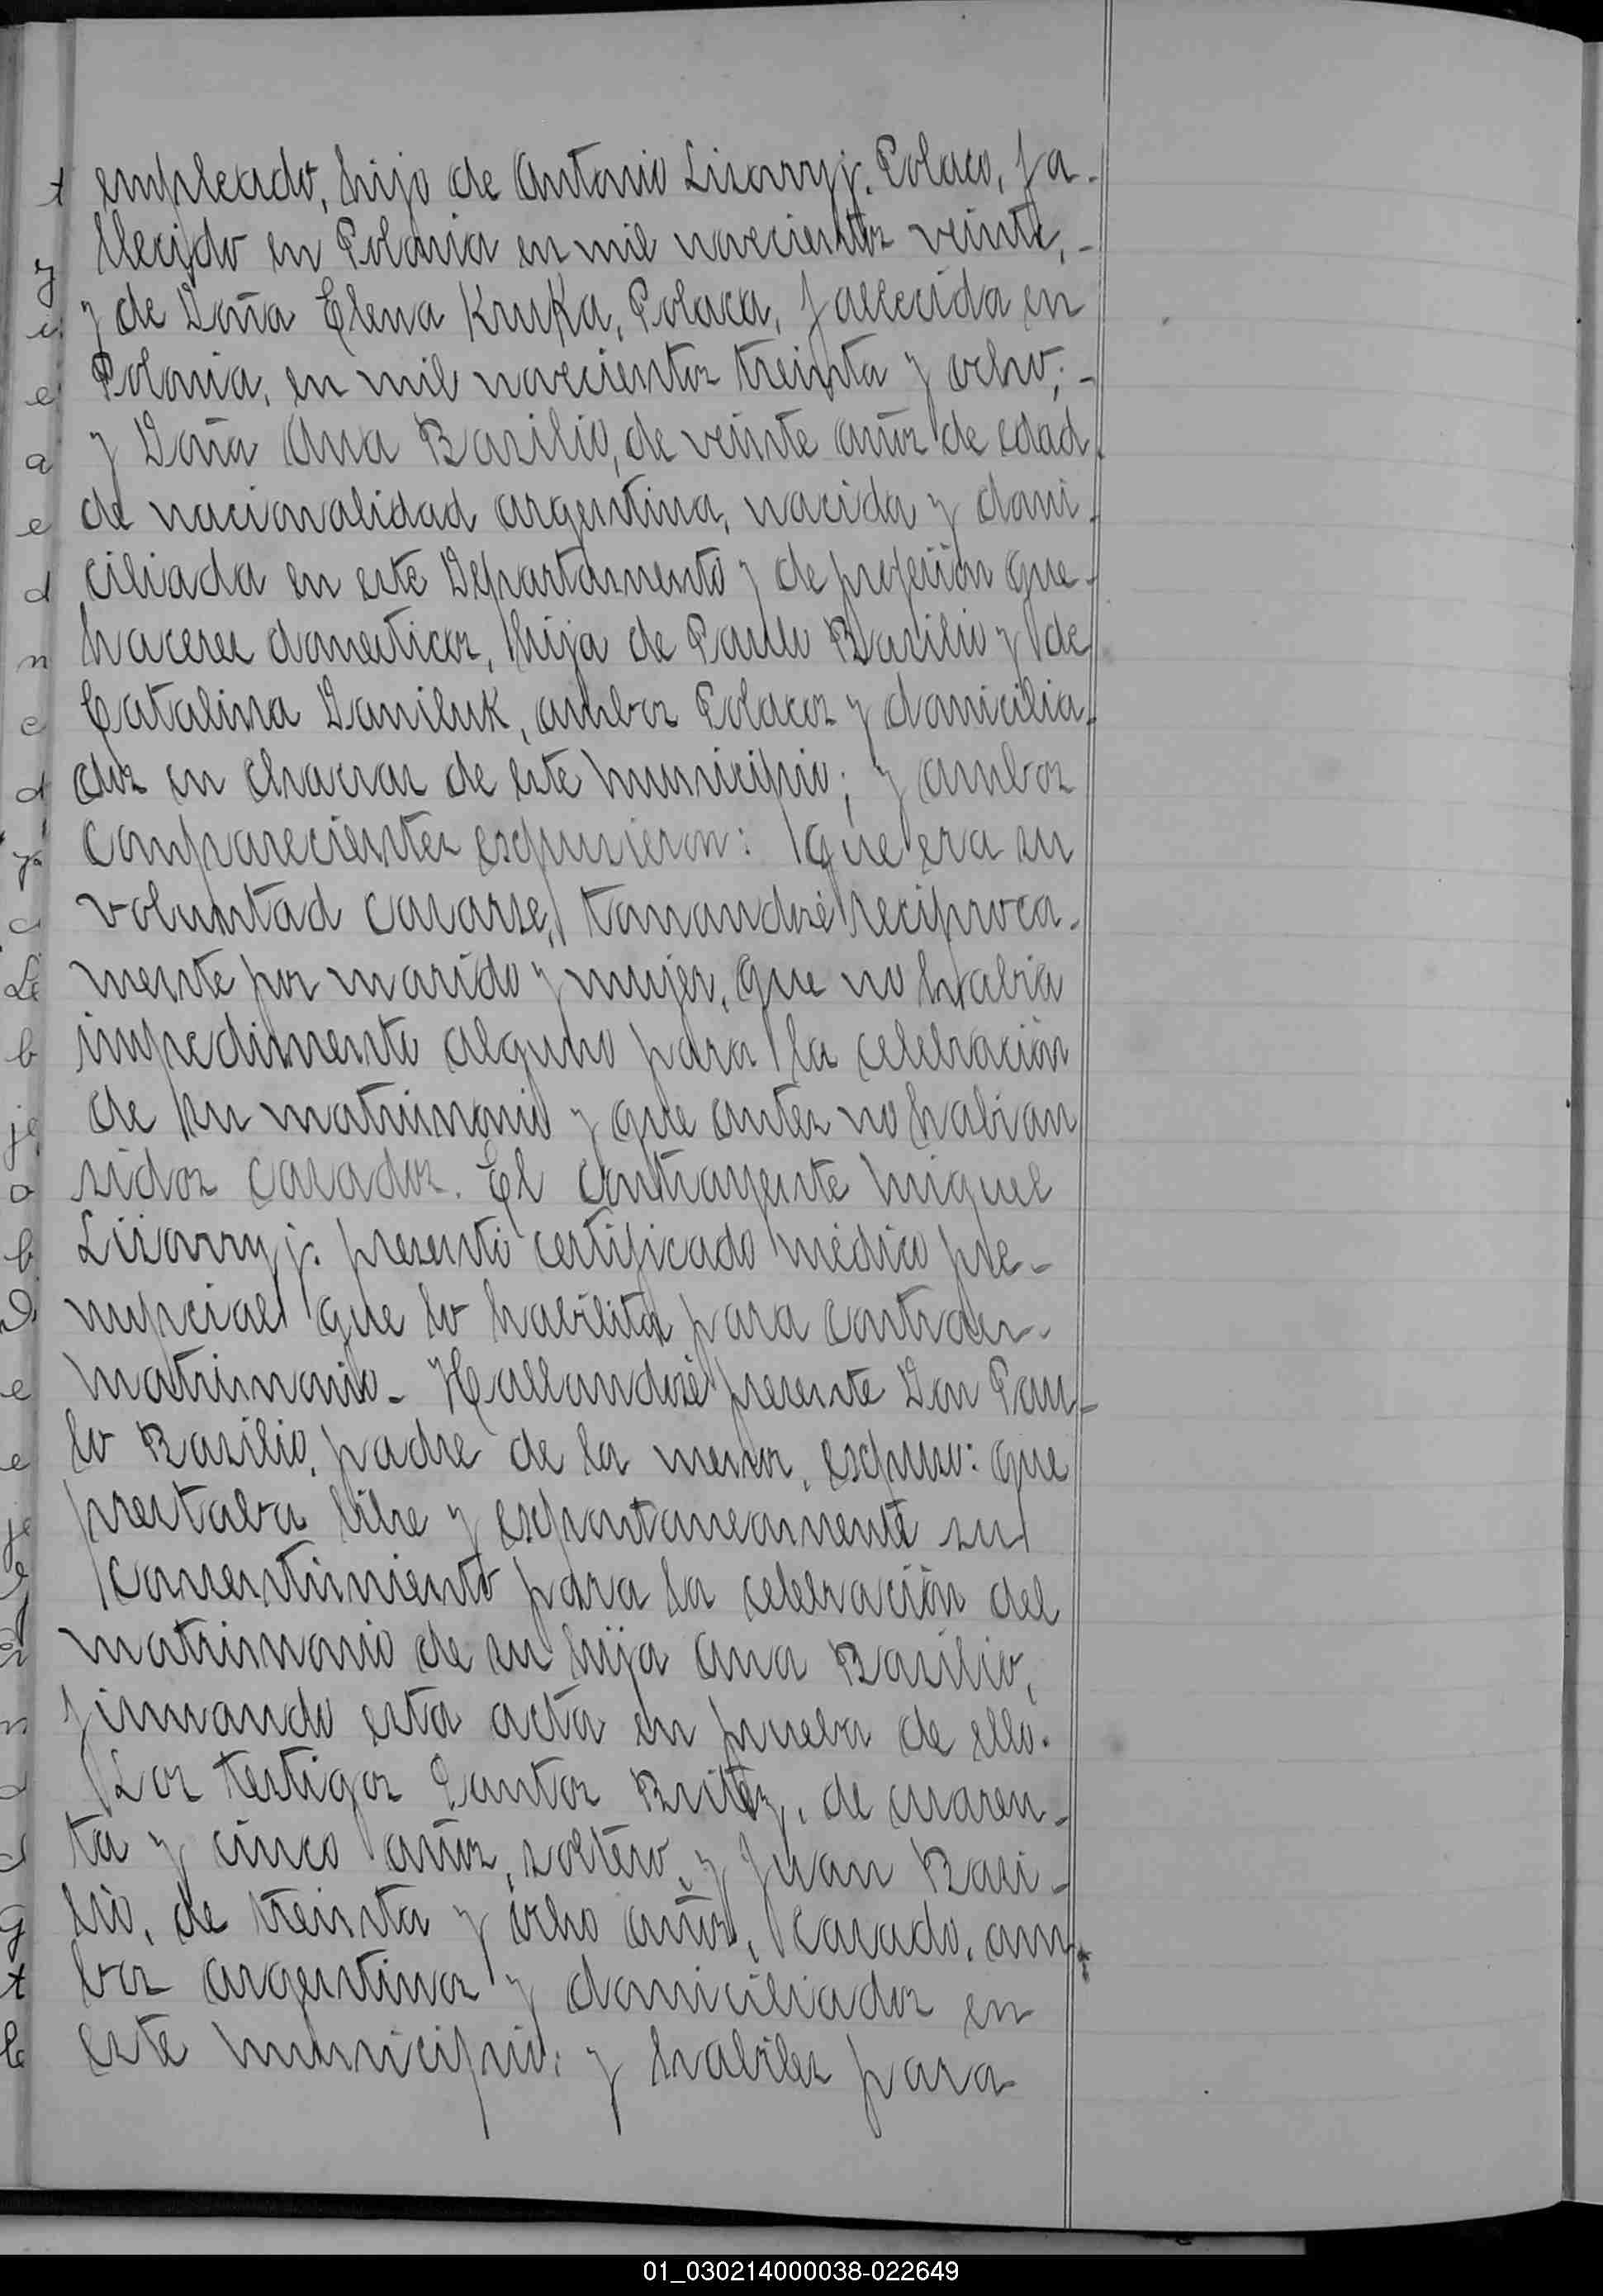 empleado, hijo de Antonio Lisowyj. Polaco, fa-
llecido en Polonia en mil novecientos veinte, -
y de Doña Elena Kruka, Polaca, fallecida en
Polonia, en mil novecientos treinta y ocho; -
y Doña Ana Basilio, de veinte años de edad
de nacionalidad argentina, nacida y domi-
ciliada en este Departamento y de profesión que-
haceres domesticos, hija de Paulo Basilio y de
Catalina Daniluk, ambos Polacos y domicilia-
dos en chacras de este Municipio; y ambos
comparecientes espusieron: que era su
voluntad casarse, tomandose reciproca-
mente por marido y mujer, que no habia
impedimento alguno para la celebración
de su matrimonio y que antes no habian
sidos casados. El contrayente Miguel
presentó certificado médico pre-
nupcial que lo habilita para contraer-
matrimonio- Hallandose presente Don Pau-
lo Basilio, padre de la menor, espuso: que
prestaba libre y espontaneamente su
consentimiento para la celebración del
matrimonio de su hija Ana Basilio,
firmando esta acta en prueba de ello.
Los testigos Santos Britez, de cuaren-
ta y cinco años, soltero, y Juan Basi-
lio, de treinta y ocho años, casado, am-
bos argentinos y domiciliados en
este municipio; y habiles para
01_030214000038-022649